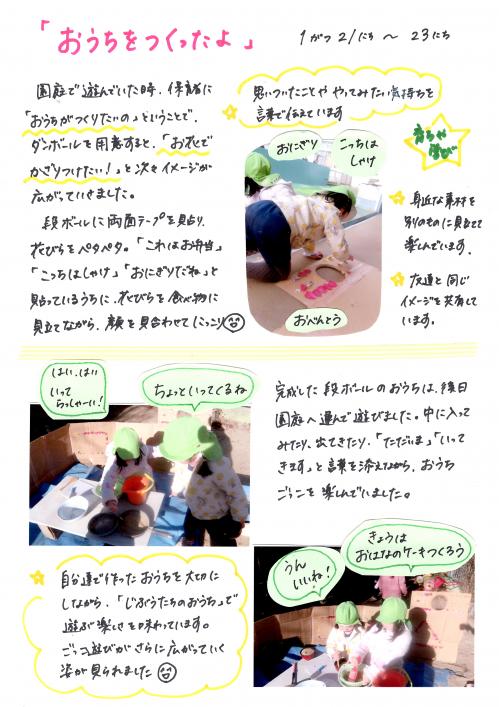 「おうちをつくったよ」
1がつ21にち ～ 23にち
園庭で遊んでいた時、保育者に
「おうちがつくりたいの」ということで、
ダンボールを用意すると、「お花で
かざりつけたい！」と次々イメージが
広がっていきました。
段ボールに両面テープを貼り、
花びらをペタペタ。「これはお弁当」
「こっちはしゃけ」「おにぎりだね」と
貼っているうちに、花びらを食べ物に
見立てながら、顔を見合わせてにっこり
思いついたことや やってみたい気持ちを
言葉で伝えています
おにぎり
こっちは
しゃけ
おべんとう
育ちや
学び
身近な素材を
別のものに見立てて
楽しんでいます。
友達と同じ
イメージを共有して
います。
はい、はい
いって
らっしゃーい！
ちょっといってくるね
完成した段ボールのおうちは、後日
園庭へ運んで遊びました。中に入って
みたり、出てきたり、「ただいま」「いって
きます」と言葉を添えながら、おうち
ごっこを楽しんでいました。
自分達で作ったおうちを大切に
しながら、「じぶんたちのおうち」で
遊ぶ楽しさを味わっています。
ごっこ遊びがさらに広がっていく
姿が見られました
うん
いいね！
きょうは
おはなのケーキつくろう